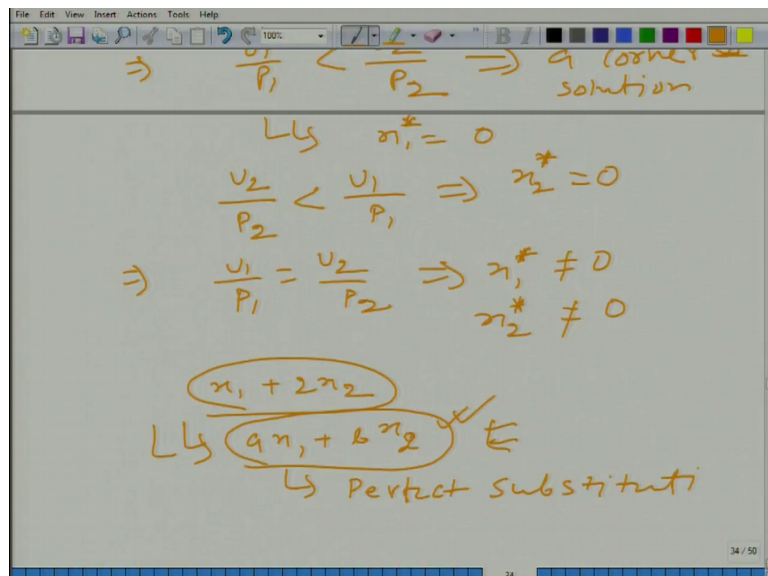 File Edit View Insert Actions Tools Help
100%
B I
⇒ U1/P1 < U2/P2 ⇒ a corner solution
↳ x1* = 0
U2/P2 < U1/P1 ⇒ x2* = 0
⇒ U1/P1 = U2/P2 ⇒ x1* ≠ 0
x2* ≠ 0
x1 + 2x2
↳ ax1 + bx2 ✓
↳ Perfect substituti
34 / 50
24